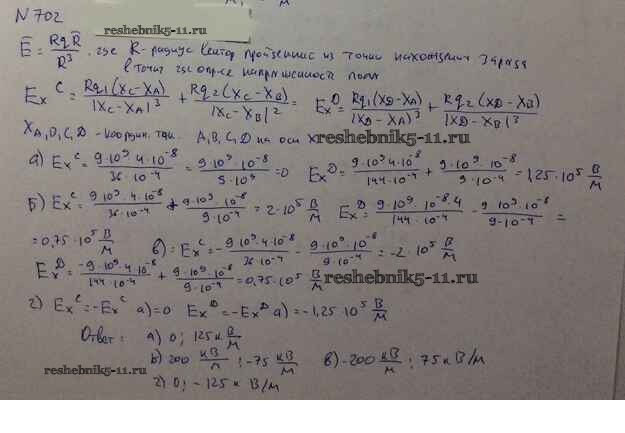 N 702
reshebnik5-11.ru
E̅ = RqR̅/R³, где R - радиус вектор
в точку где напряженность поля
Ex^C = Rq₁(Xc-XA)/|Xc-XA|³ + Rq₂(Xc-XB)/|Xc-XB|² = Ex^D = Rq₁(XD-XA)/|XD-XA)³ + Rq₂(XD-XB)/|XD-XB|³
XA,B,C,D - координ. точ. A,B,C,D на оси x reshebnik5-11.ru
а) Ex^C = 9·10⁹·4·10⁻⁸/36·10⁻⁴ = 9·10⁹·10⁻⁸/9·10⁻⁴ = 0 Ex^D = 9·10⁹·4·10⁻⁸/144·10⁻⁴ + 9·10⁹·10⁻⁸/9·10⁻⁴ = 1,25·10⁵ В/м
б) Ex^C = 9·10⁹·4·10⁻⁸/36·10⁻⁴ + 9·10⁹·10⁻⁸/9·10⁻⁴ = 2·10⁵ В/м Ex^D = 9·10⁹·10⁻⁸·4/144·10⁻⁴ - 9·10⁹·10⁻⁸/9·10⁻⁴ =
= 0,75·10⁵ В/м в) Ex^C = -9·10⁹·4·10⁻⁸/36·10⁻⁴ - 9·10⁹·10⁻⁸/9·10⁻⁴ = -2·10⁵ В/м
Ex^D = -9·10⁹·4·10⁻⁸/144·10⁻⁴ + 9·10⁹·10⁻⁸/9·10⁻⁴ = 0,75·10⁵ В/м reshebnik5-11.ru
г) Ex^C = -Ex^C а) = 0 Ex^D = -Ex^D а) = -1,25·10⁵ В/м
Ответ: а) 0; 125 к В/м
б) 200 кВ/м; -75 кВ/м в) -200 кВ/м; 75 к В/м
reshebnik5-11.ru
г) 0; -125 к В/м